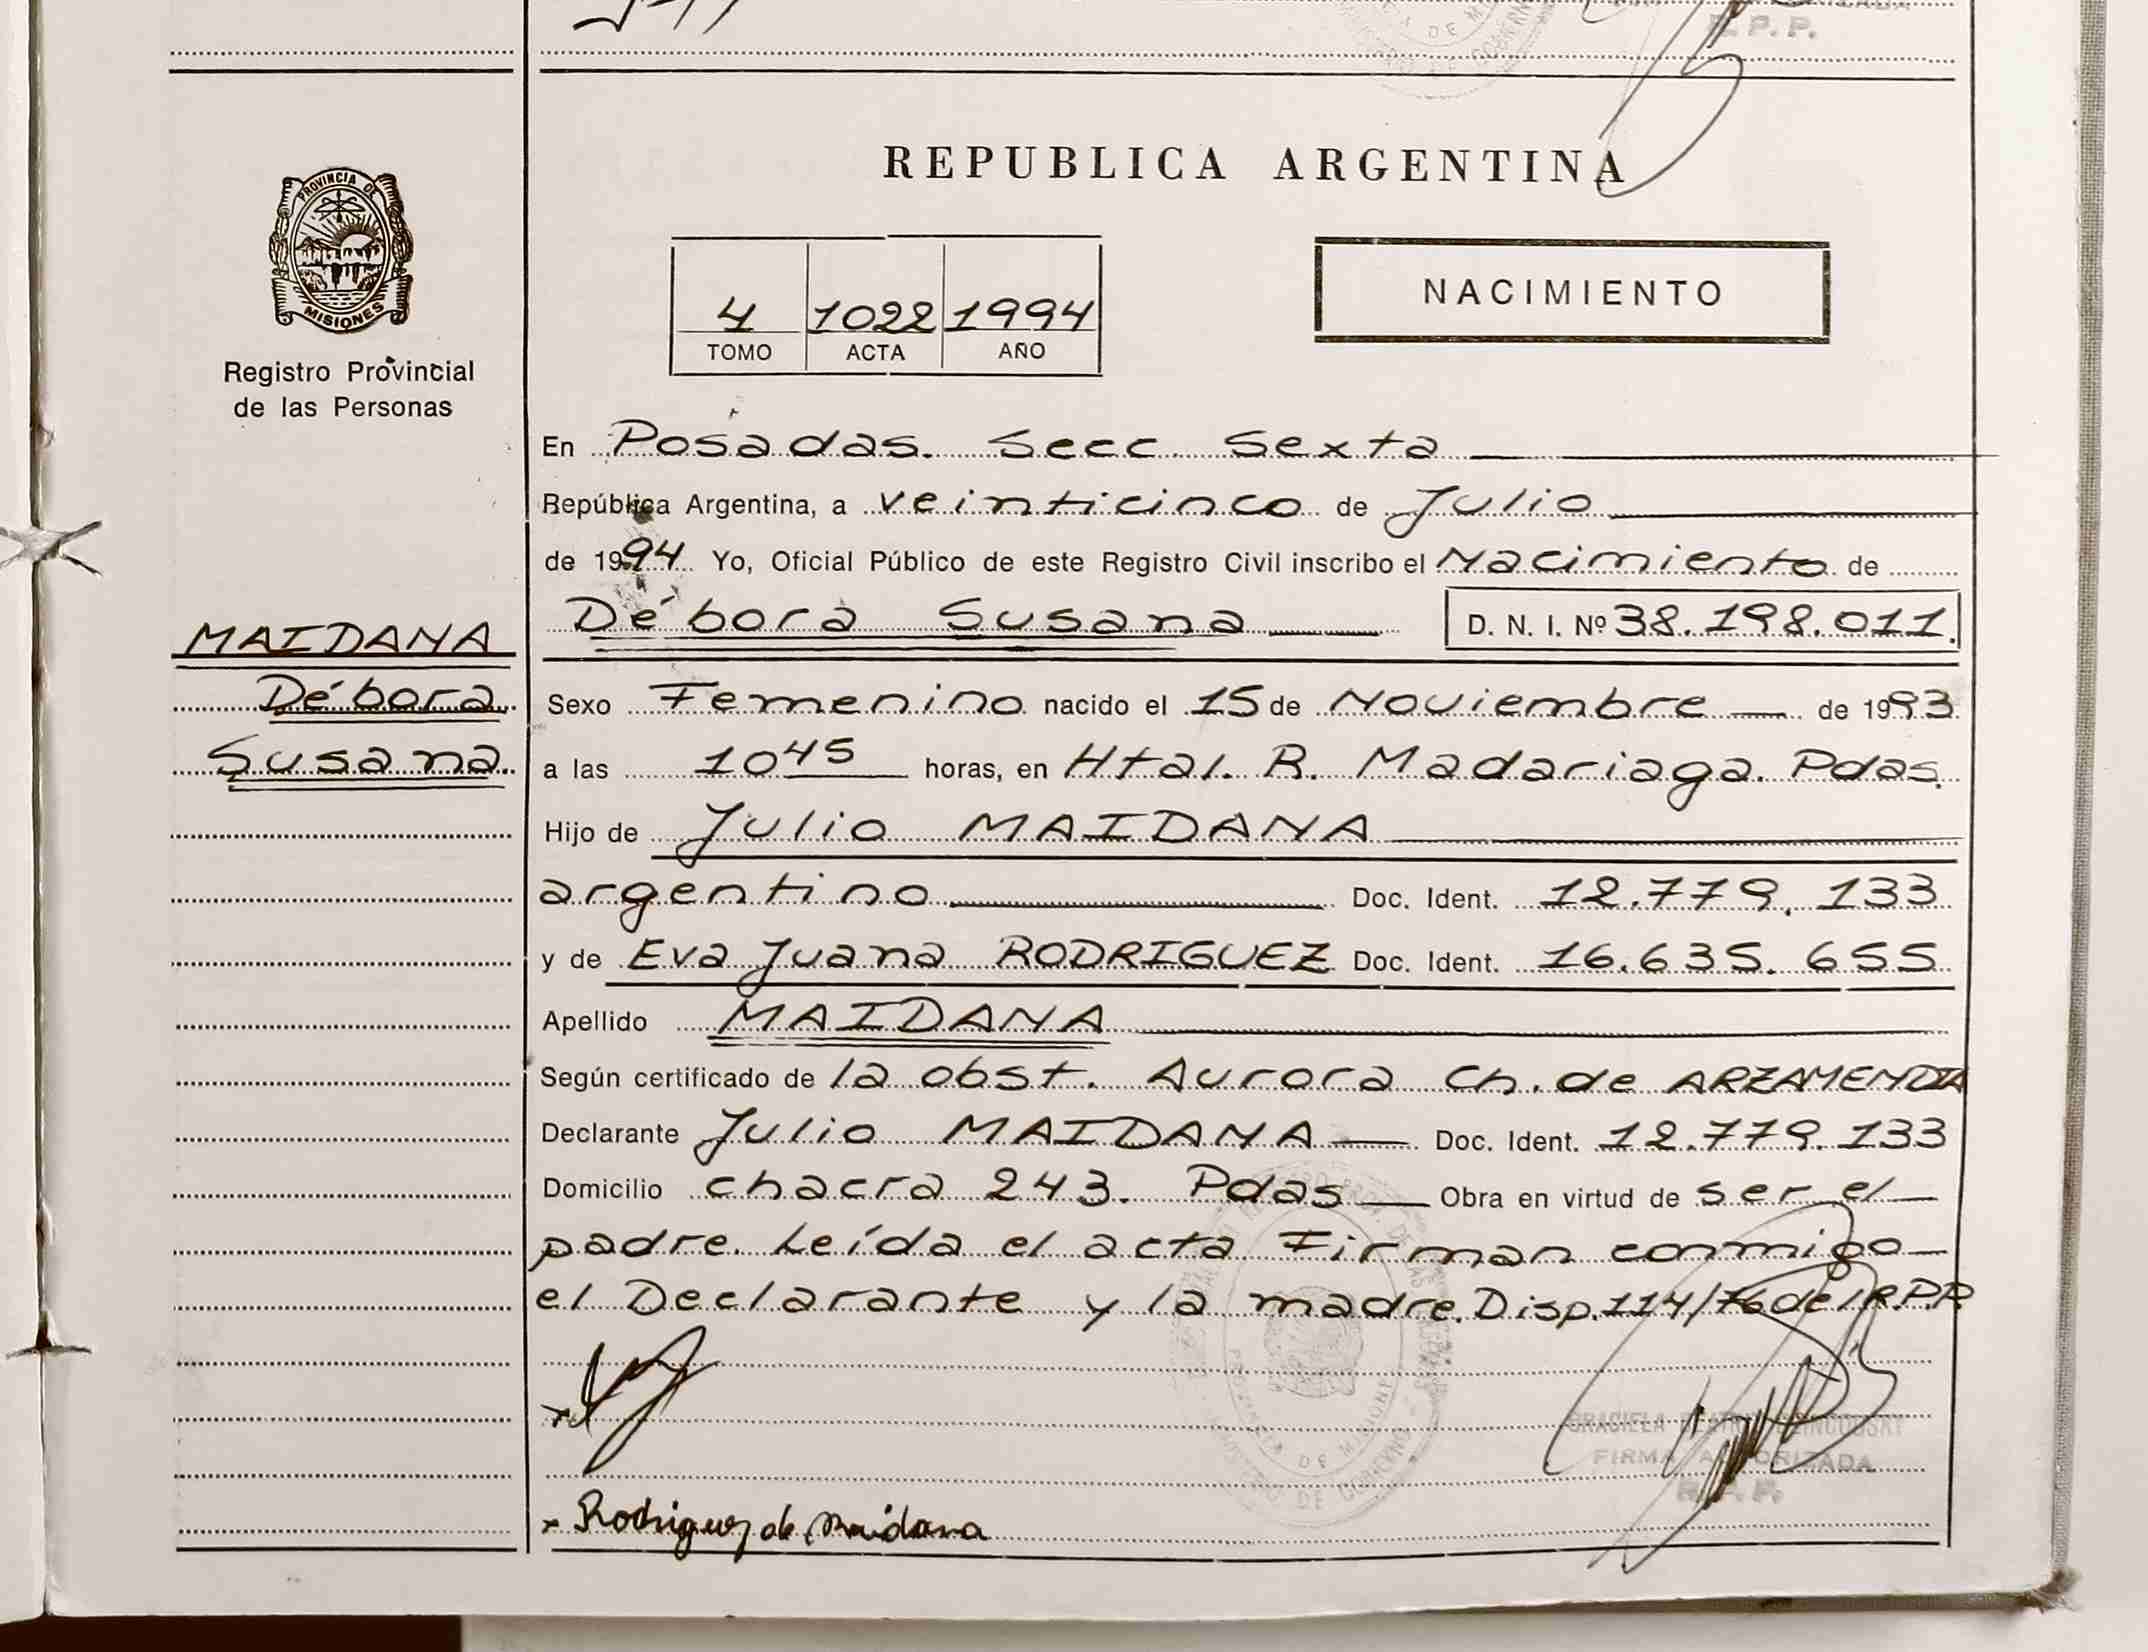 R.P.P.
REPUBLICA ARGENTINA
PROVINCIA DE
MISIONES
Registro Provincial
de las Personas
4 1022 1994
TOMO ACTA AÑO
NACIMIENTO
En Posadas. Secc. Sexta
República Argentina, a veinticinco de Julio
de 1994 Yo, Oficial Público de este Registro Civil inscribo el Nacimiento de
MAIDANA
Débora
Susana.
Débora Susana D. N. I. Nº 38.198.011.
Sexo Femenino nacido el 15 de Noviembre de 1993
a las 10 45 horas, en Htal. R. Madariaga. Pdas.
Hijo de Julio MAIDANA
argentino Doc. Ident. 12.779.133
y de Eva Juana RODRIGUEZ Doc. Ident. 16.635.655
Apellido MAIDANA
Según certificado de la obst. Aurora Ch. de ARZAMENDIA
Declarante Julio MAIDANA Doc. Ident. 12.779.133
Domicilio chacra 243. Pdas Obra en virtud de ser el
padre. Leída el acta Firman conmigo
el Declarante y la madre. Disp. 114/76 del R.P.P.
GRACIELA BEATRIZ
FIRMA AUTORIZADA
R.P.P.
PROVINCIA DE MISIONES
x Rodriguez de Maidana